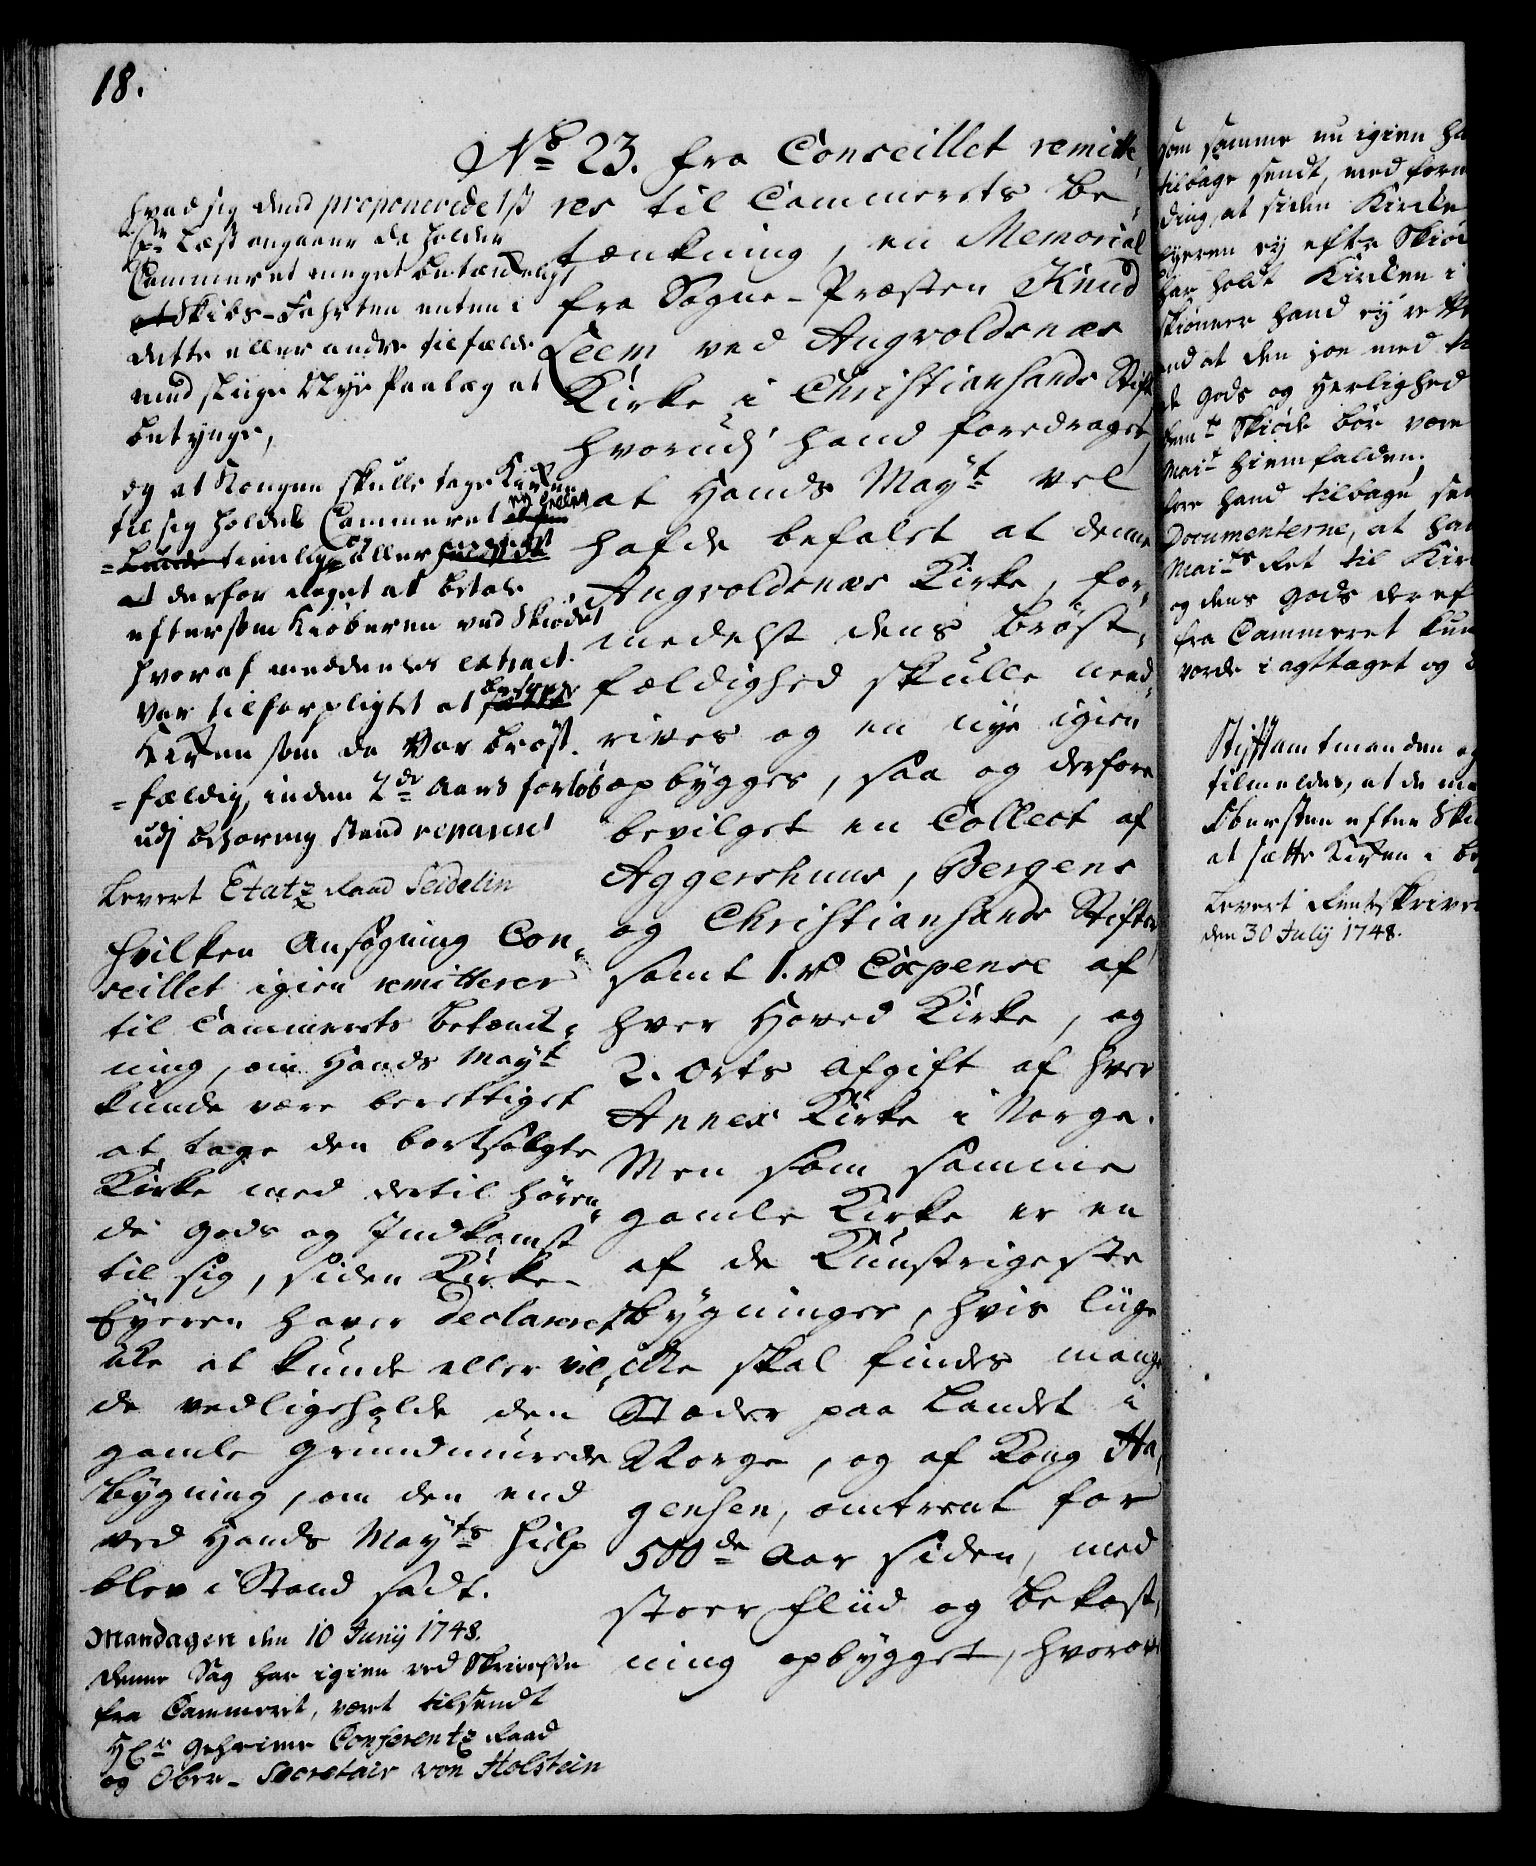 18.
No 23. fra Conseillet remitte,
res til Cammerets Be,
tænkning, en Memorial
fra Sogne-Præsten Knud
Leem ved Augvoldsnæs
Kirke i Christiansands Stift
hvorudj hand foredrager,
at Hands Mayt vel
hafde befalet at denne
Augvoldsnæs Kirke, for,
medelst dens brøst,
fældighed skulle need,
rives og en nye igien
opbygges, saa og derfore
bevilget en Collect af
Aggershuus, Bergens
og Christiansands Stifter
samt 1. rd Expense af
hver Hoved Kirke, og
2. Orts Afgift af hver
Annex Kirke i Norge.
Men som samme
gamle Kirke er en
af de Kunstrigeste
bygninger, hvis liige
ikke skal findes mange
Stæder paa Landet i
Norge, og af Kong Ha,
gensen, omtrent for
500de Aar siden, med
stoer fliid og Bekost,
ning opbygget, hvorov
hvad sig dend proponerede
Læst angaaer da holder
Cammeret meget betænkeligt
at Skibs-Farten enten i
dette eller andre tilfælde
med slige Nye Paalæg at
betynge,
og at Kongen skulle tage Kirken
til sig holder Cammeret ey heller
tienlig og aller
at derfor noget at betale
eftersom Kiøberen ved Skiødet
hvoraf meddeeles extract
var tilforpligtet at
Kirken som da var brøst,
fældig, inden 2de Aars forløb
udj behørig stand reparert
Levert Etatz Raad Seidelin
Hvilken Ansøgning Con,
seillet igien remitterer
til Cammerets Betænk,
ning, om Hands Mayt
kunde være berettiget
at tage den bortsolgte
Kirke med dertil høren,
de Gods og Indkomst
til sig, siden Kirke-
Eyeren haver declareret
ikke at kunde eller vil,
de vedligeholde den
gamle Grundmurede
bygning, om den end
ved Hands Mayts hielp
blev i Stand sadt.
Mandagen den 10 Junij 1748.
Denne Sag har igien ved Skrivelse
fra Cammeret, været tilsendt
Hr Geheime Conferentz Raad
og Ober-Secretair von Holstein
som samme nu igien ha
tilbage sendt, med form
ding, at siden Kirke
Eyeren ey efter Skiød
har holdt Kirken i
skiønner hand ey rette
end at den jo med
de Gods og Herlighed
Skiøde bør være
Mait hiemfalden,
fore hand tilbage sen
Documenterne, at ha
Maits Ret til Kir
og dens Gods deref
fra Cammeret kun
vorde i agttaget og
Stiftamtmanden og
tilmeldes, at de ma
Obersten efter Ski
at sætte Kirken i be
Levert Rentskriver
den 30 Julij 1748.